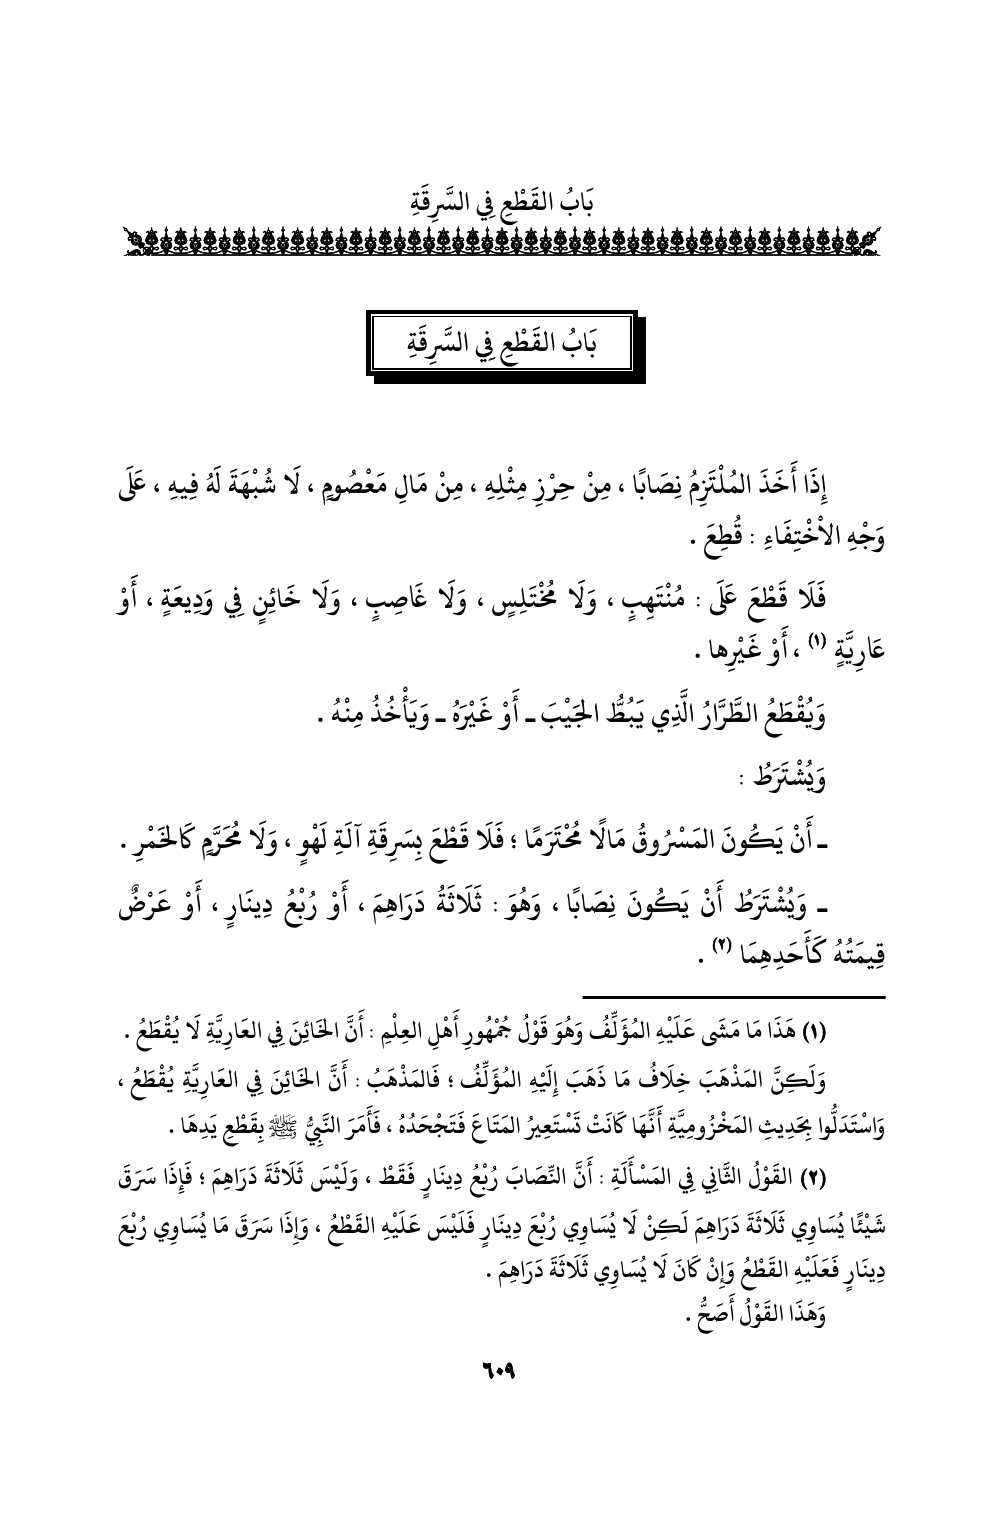 بَابُ القَطْعِ فِي السَّرِقَةِ
بَابُ القَطْعِ فِي السَّرِقَةِ
إِذَا أَخَذَ المُلْتَزِمُ نِصَابًا ، مِنْ حِرْزِ مِثْلِهِ ، مِنْ مَالِ مَعْصُومٍ ، لَا شُبْهَةَ لَهُ فِيهِ ، عَلَى
وَجْهِ الاْخْتِفَاءِ : قُطِعَ .
فَلَا قَطْعَ عَلَى : مُنْتَهِبٍ ، وَلَا مُخْتَلِسٍ ، وَلَا غَاصِبٍ ، وَلَا خَائِنٍ فِي وَدِيعَةٍ ، أَوْ
عَارِيَّةٍ (١) ، أَوْ غَيْرِها .
وَيُقْطَعُ الطَّرَّارُ الَّذِي يَبُطُّ الجَيْبَ ـ أَوْ غَيْرَهُ ـ وَيَأْخُذُ مِنْهُ .
وَيُشْتَرَطُ :
ـ أَنْ يَكُونَ المَسْرُوقُ مَالًا مُحْتَرَمًا ؛ فَلَا قَطْعَ بِسَرِقَةِ آلَةِ لَهْوٍ ، وَلَا مُحَرَّمٍ كَالخَمْرِ .
ـ وَيُشْتَرَطُ أَنْ يَكُونَ نِصَابًا ، وَهُوَ : ثَلَاثَةُ دَرَاهِمَ ، أَوْ رُبْعُ دِينَارٍ ، أَوْ عَرْضٌ
قِيمَتُهُ كَأَحَدِهِمَا (٢) .
(١) هَذَا مَا مَشَى عَلَيْهِ المُؤَلِّفُ وَهُوَ قَوْلُ جُمْهُورِ أَهْلِ العِلْمِ : أَنَّ الخَائِنَ فِي العَارِيَّةِ لَا يُقْطَعُ .
وَلَكِنَّ المَذْهَبَ خِلَافُ مَا ذَهَبَ إِلَيْهِ المُؤَلِّفُ ؛ فَالمَذْهَبُ : أَنَّ الخَائِنَ فِي العَارِيَّةِ يُقْطَعُ ،
وَاسْتَدَلُّوا بِحَدِيثِ المَخْزُومِيَّةِ أَنَّهَا كَانَتْ تَسْتَعِيرُ المَتَاعَ فَتَجْحَدُهُ ، فَأَمَرَ النَّبِيُّ ﷺ بِقَطْعِ يَدِهَا .
(٢) القَوْلُ الثَّانِي فِي المَسْأَلَةِ : أَنَّ النِّصَابَ رُبْعُ دِينَارٍ فَقَطْ ، وَلَيْسَ ثَلَاثَةَ دَرَاهِمَ ؛ فَإِذَا سَرَقَ
شَيْئًا يُسَاوِي ثَلَاثَةَ دَرَاهِمَ لَكِنْ لَا يُسَاوِي رُبْعَ دِينَارٍ فَلَيْسَ عَلَيْهِ القَطْعُ ، وَإِذَا سَرَقَ مَا يُسَاوِي رُبْعَ
دِينَارٍ فَعَلَيْهِ القَطْعُ وَإِنْ كَانَ لَا يُسَاوِي ثَلَاثَةَ دَرَاهِمَ .
وَهَذَا القَوْلُ أَصَحُّ .
٦٠٩